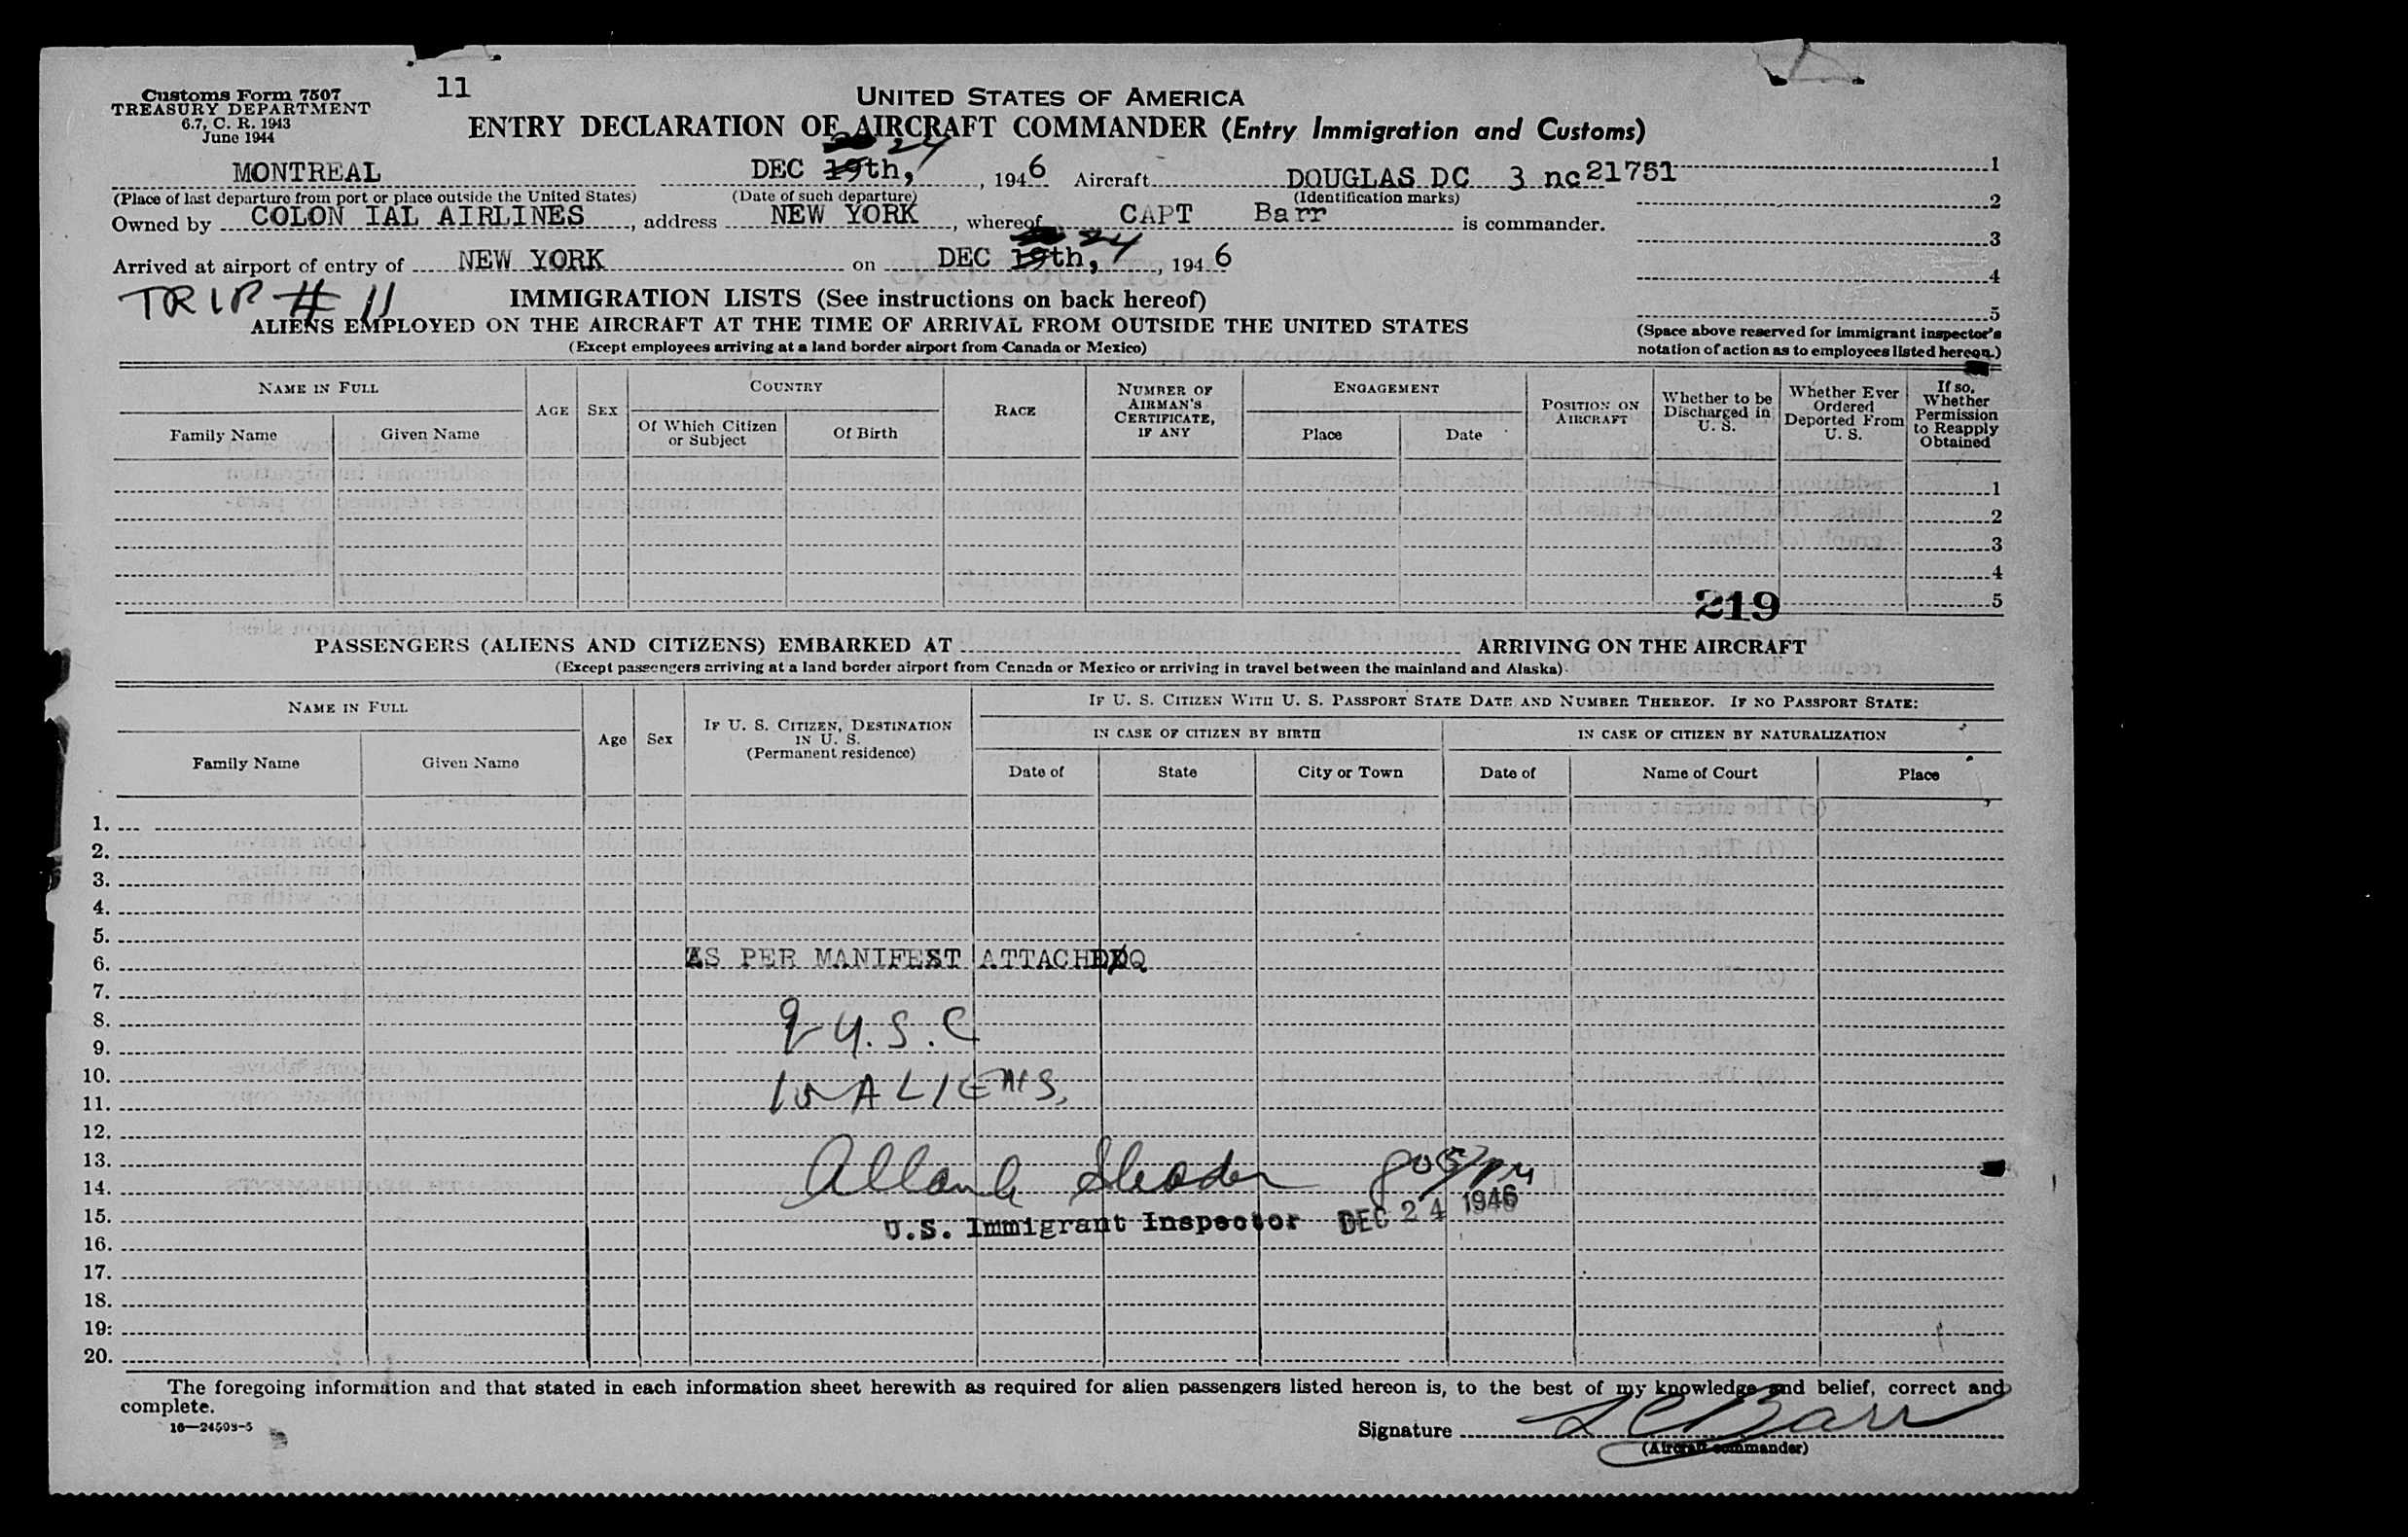 Customs Form 7507
TREASURY DEPARTMENT
6.7, C. R. 1943
June 1944
11
UNITED STATES OF AMERICA
ENTRY DECLARATION OF AIRCRAFT COMMANDER (Entry Immigration and Customs)
MONTREAL DEC 19th, 24, 1946 Aircraft DOUGLAS DC 3 nc 21751
(Place of last departure from port or place outside the United States) (Date of such departure) (Identification marks)
Owned by COLON IAL AIRLINES, address NEW YORK, whereof CAPT Barr is commander.
Arrived at airport of entry of NEW YORK on DEC 19th, 24, 1946
1
2
3
4
5
(Space above reserved for immigrant inspector's
notation of action as to employees listed hereon.)
TRIP # 11
IMMIGRATION LISTS (See instructions on back hereof)
ALIENS EMPLOYED ON THE AIRCRAFT AT THE TIME OF ARRIVAL FROM OUTSIDE THE UNITED STATES
(Except employees arriving at a land border airport from Canada or Mexico)
NAME IN FULL
Family Name Given Name
AGE SEX
COUNTRY
Of Which Citizen or Subject Of Birth
RACE
NUMBER OF AIRMAN'S CERTIFICATE, IF ANY
ENGAGEMENT
Place Date
POSITION ON AIRCRAFT
Whether to be Discharged in U. S.
Whether Ever Ordered Deported From U. S.
If so, Whether Permission to Reapply Obtained
1
2
3
4
5
219
PASSENGERS (ALIENS AND CITIZENS) EMBARKED AT ARRIVING ON THE AIRCRAFT
(Except passengers arriving at a land border airport from Canada or Mexico or arriving in travel between the mainland and Alaska)
NAME IN FULL
Family Name Given Name
Age Sex
IF U. S. CITIZEN, DESTINATION IN U. S.
(Permanent residence)
IF U. S. CITIZEN WITH U. S. PASSPORT STATE DATE AND NUMBER THEREOF. IF NO PASSPORT STATE:
IN CASE OF CITIZEN BY BIRTH IN CASE OF CITIZEN BY NATURALIZATION
Date of State City or Town Date of Name of Court Place
1.
2.
3.
4.
5.
6. AS PER MANIFEST ATTACHED
7.
8. 9 U.S.C
9.
10. ALIENS
11.
12.
13.
14.
15. U.S. Immigrant Inspector DEC 24 1946
16.
17.
18.
19.
20.
The foregoing information and that stated in each information sheet herewith as required for alien passengers listed hereon is, to the best of my knowledge and belief, correct and
complete.
16—24503-5
Signature L C Barr
(Aircraft commander)